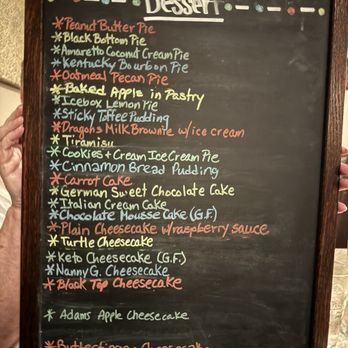 Dessert
*Peanut Butter Pie
*Black Bottom Pie
*Amaretto Coconut Cream Pie
*Kentucky Bourbon Pie
*Oatmeal Pecan Pie
*Baked Apple in Pastry
*Icebox Lemon Pie
*Sticky Toffee Pudding
*Dragons Milk Brownie w/ice cream
*Tiramisu
*Cookies + Cream Ice Cream Pie
*Cinnamon Bread Pudding
*Carrot Cake
*German Sweet Chocolate Cake
*Italian Cream Cake
*Chocolate Mousse Cake (G.F.)
*Plain Cheesecake w/raspberry sauce
*Turtle Cheesecake
*Keto Cheesecake (G.F.)
*Nanny G. Cheesecake
*Black Top Cheesecake
*Adams Apple Cheesecake
*Butterfinger Cheesecake